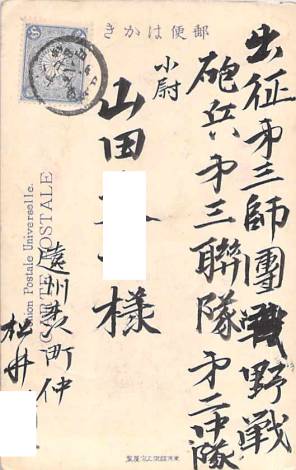 郵便はかき
出征オ三師團野戦
砲兵オ三聯隊オ二中隊
小尉
山田
様
遠州
町仲
松井
Union Postale Universelle.
CARTE POSTALE